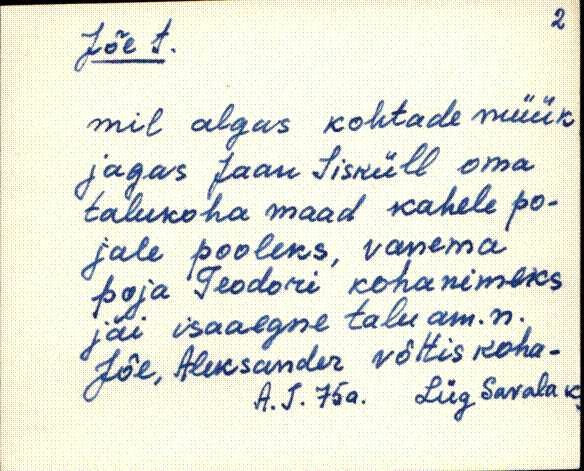 2
Jõe t.
mil algas kohtade müük
jagas Jaan Sisküll oma
talukoha maad kahele po-
jale pooleks, vanema
poja Teodori kohanimeks
jäi isaaegne talu am. n.
Jõe, Aleksander võttis koha-
A. J. 75a. Lüg Savala k,